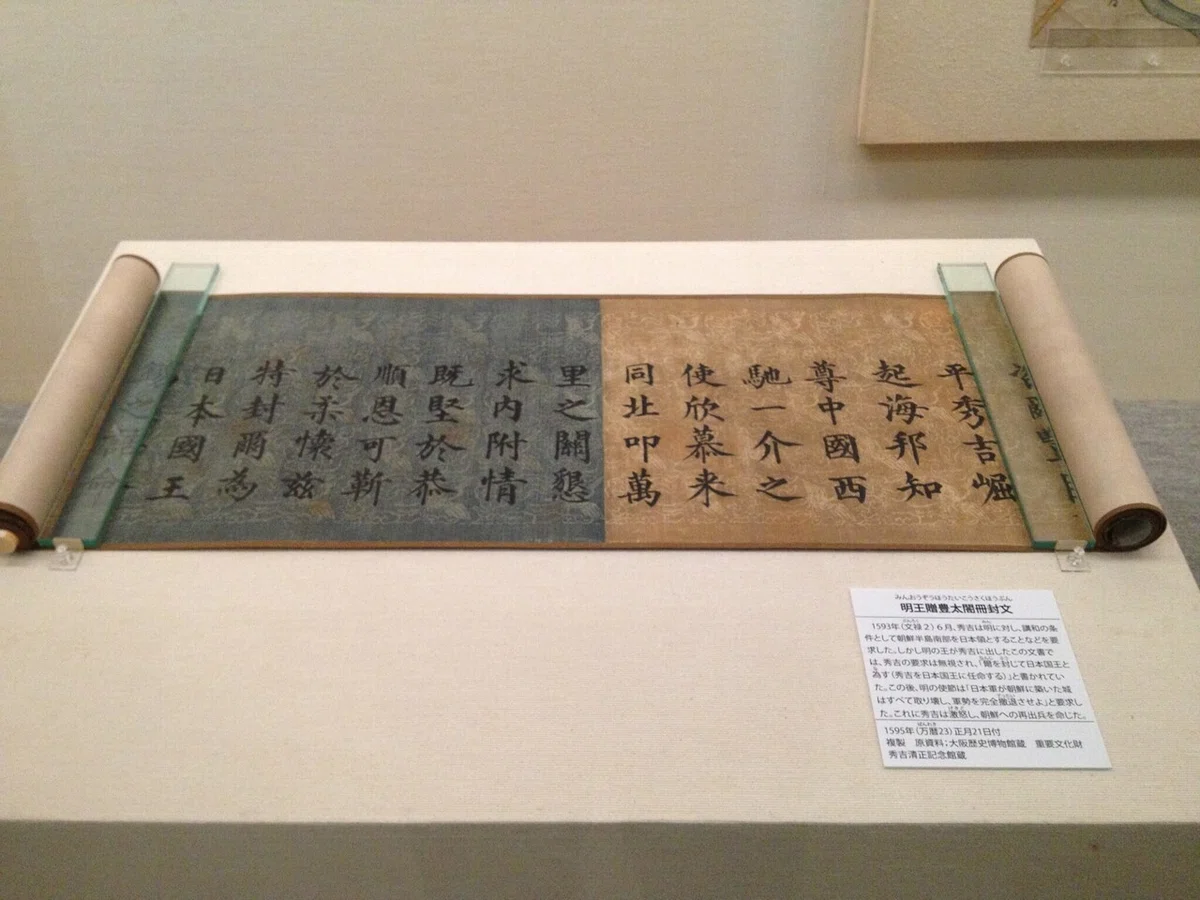 平秀吉崛
起海邦知
尊中國西
馳一介之
使欣慕来
同北叩萬
里之關懇
求内附情
既堅於恭
順恩可靳
於柔懷兹
特封爾為
日本國王
みんおうぞうほうたいこうさくほうぶん
明王贈豊太閤冊封文
1593年(文禄2)6月、秀吉は明に対し、講和の条
件として朝鮮半島南部を日本領とすることなどを要
求した。しかし明の王が秀吉に出したこの文書で
は、秀吉の要求は無視され、「爾を封じて日本国王と
為す(秀吉を日本国王に任命する)」と書かれてい
た。この後、明の使節は「日本軍が朝鮮に築いた城
はすべて取り壊し、軍勢を完全撤退させよ」と要求し
た。これに秀吉は激怒し、朝鮮への再出兵を命じた。
1595年(万暦23)正月21日付
複製 原資料;大阪歴史博物館蔵 重要文化財
秀吉清正記念館蔵